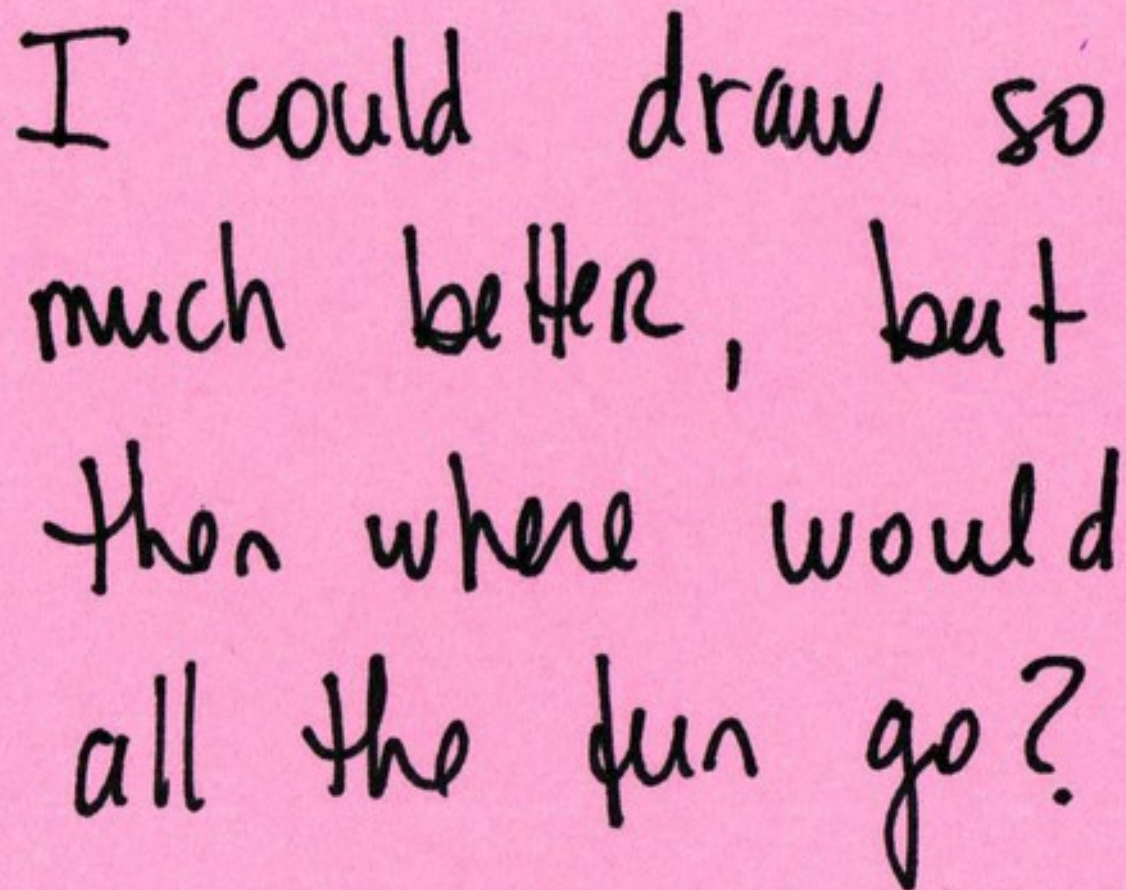 I could draw so
much better, but
then where would
all the fun go?